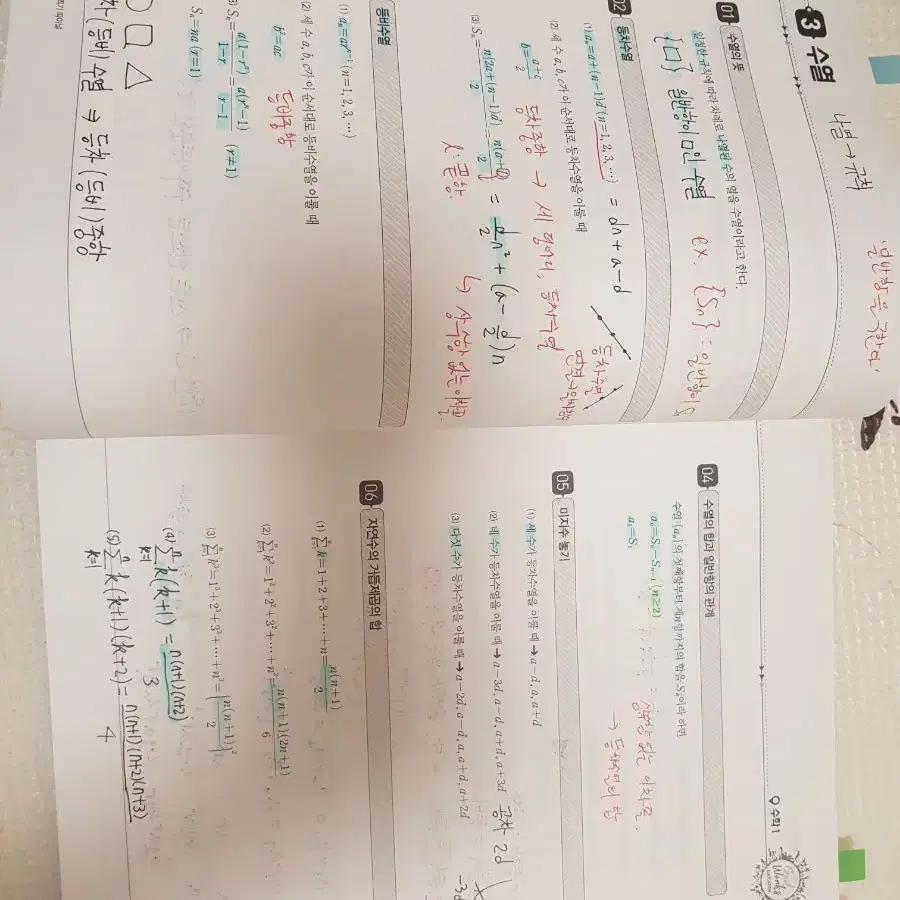 일반항을 구한다.
3 수열
나열 → 규칙
01 수열의 뜻
일정한 규칙에 따라 차례로 나열된 수의 열을 수열이라고 한다.
{□} 일반항이 □인 수열 ex. {Sn} : 일반항이 Sn
02 등차수열
(1) aₙ=a+(n-1)d (n=1, 2, 3, …) = dn + a-d
(2) 세 수 a, b, c가 이 순서대로 등차수열을 이룰 때
b=(a+c)/2 등차중항 → 세 덩어리, 등차수열
등차수열
(3) Sₙ=n{2a+(n-1)d}/2=n(a+l)/2 = d/2 n² + (a - d/2)n
l : 끝항 ↳ 상수항 없는 이차식
등비수열
(1) aₙ=arⁿ⁻¹ (n=1, 2, 3, …)
(2) 세 수 a, b, c가 이 순서대로 등비수열을 이룰 때
b²=ac 등비중항
(3) Sₙ=a(1-rⁿ)/(1-r)=a(rⁿ-1)/(r-1) (r≠1)
Sₙ=na (r=1)
○ □ △
등차(등비)수열 ⇒ 등차(등비)중항
수학 I
04 수열의 합과 일반항의 관계
수열 {aₙ}의 첫째항부터 제n항까지의 합을 Sₙ이라 하면
aₙ=Sₙ-Sₙ₋₁ (n≥2)
a₁=S₁
상수항 없는 이차식.
→ 등차수열의 합
05 미지수 놓기
(1) 세 수가 등차수열을 이룰 때 → a-d, a, a+d
(2) 네 수가 등차수열을 이룰 때 → a-3d, a-d, a+d, a+3d 공차 2d
(3) 다섯 수가 등차수열을 이룰 때 → a-2d, a-d, a, a+d, a+2d
06 자연수의 거듭제곱의 합
(1) ∑ₖ₌₁ⁿ k=1+2+3+…+n=n(n+1)/2
(2) ∑ₖ₌₁ⁿ k²=1²+2²+3²+…+n²=n(n+1)(2n+1)/6
(3) ∑ₖ₌₁ⁿ k³=1³+2³+3³+…+n³={n(n+1)/2}²
(4) ∑ₖ₌₁ⁿ k(k+1) = n(n+1)(n+2)/3
(5) ∑ₖ₌₁ⁿ k(k+1)(k+2) = n(n+1)(n+2)(n+3)/4